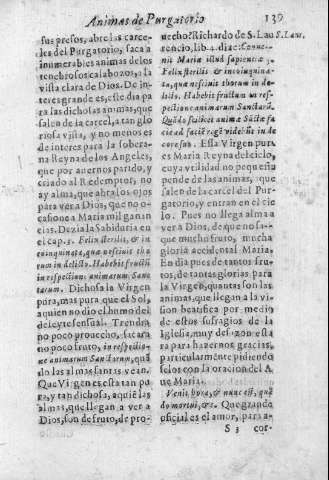 Animas de Purgatorio 139
sus presos, abre las carce-
les del Purgatorio, saca a
inumerables animas de los
tenebrosos calabozos, a la
vista clara de Dios. De in-
teres grande es, este dia pa
ra las dichosas animas, que
salen de la carcel, a tan glo
riosa vista, y no menos es
de interes para la sobera-
na Reyna de los Angeles,
que por auernos parido, y
criado al Redemptor, no
ay alma, que abra los ojos
para ver a Dios, que no o-
casione a Maria mil ganan
cias. Dezia la Sabiduria en
el cap. 3. Felix sterilis, & in
coinquinata, quæ nesciuit tho
rum in delicto. Habebit fructũ
in respectione animarum Sanc
tarum. Dichosa la Virgen
pura, mas pura que el Sol,
a quien no dio el humo del
deleyte sensual. Tendra
no poco prouecho, sacara
no poco fruto, in respectio-
ne animarum Sanctarum, quã
do las almas santas vean.
Que Virgen esta tan pu
ra, y tan dichosa, a quiẽ las
almas, que llegan a ver a
Dios, son de fruto, de pro-
uecho? Richardo de S. Lau S. Laur.
rencio, lib. 4. dize: Conue-
nit Mariæ illud sapientiæ 3.
Felix sterilis & incoinquina-
ta, quæ nesciuit thorum in de-
licto. Habebit fructum in res-
pectione animarum Sanctarũ.
Quãdo scilicet animæ Sãctæ fa
cie ad faciẽ regẽ videbũt in de
core suo. Esta Virgen pura
es Maria Reyna del cielo,
cuya vtilidad no pequeña
pende de las animas, que
salen de la carcel del Pur-
gatorio, y entran en el cie
lo. Pues no llega alma a
ver a Dios, de que no sa-
que mucho fruto, mucha
gloria accidental Maria:
En dia pues de tantos fru-
tos, de tantas glorias para
la Virgen, quantas son las
animas, que llegan a la vi-
sion beatifica por medio
de estos sufragios de la
Iglesia, muy de razon està
para hazernos gracias,
particularmente pidiendo
selos con la oracion del A
ue Maria.
Venit hora, & nunc est, quã
do mortui, &c. Que grande
oficial es el amor, para a-
S 3 cor-